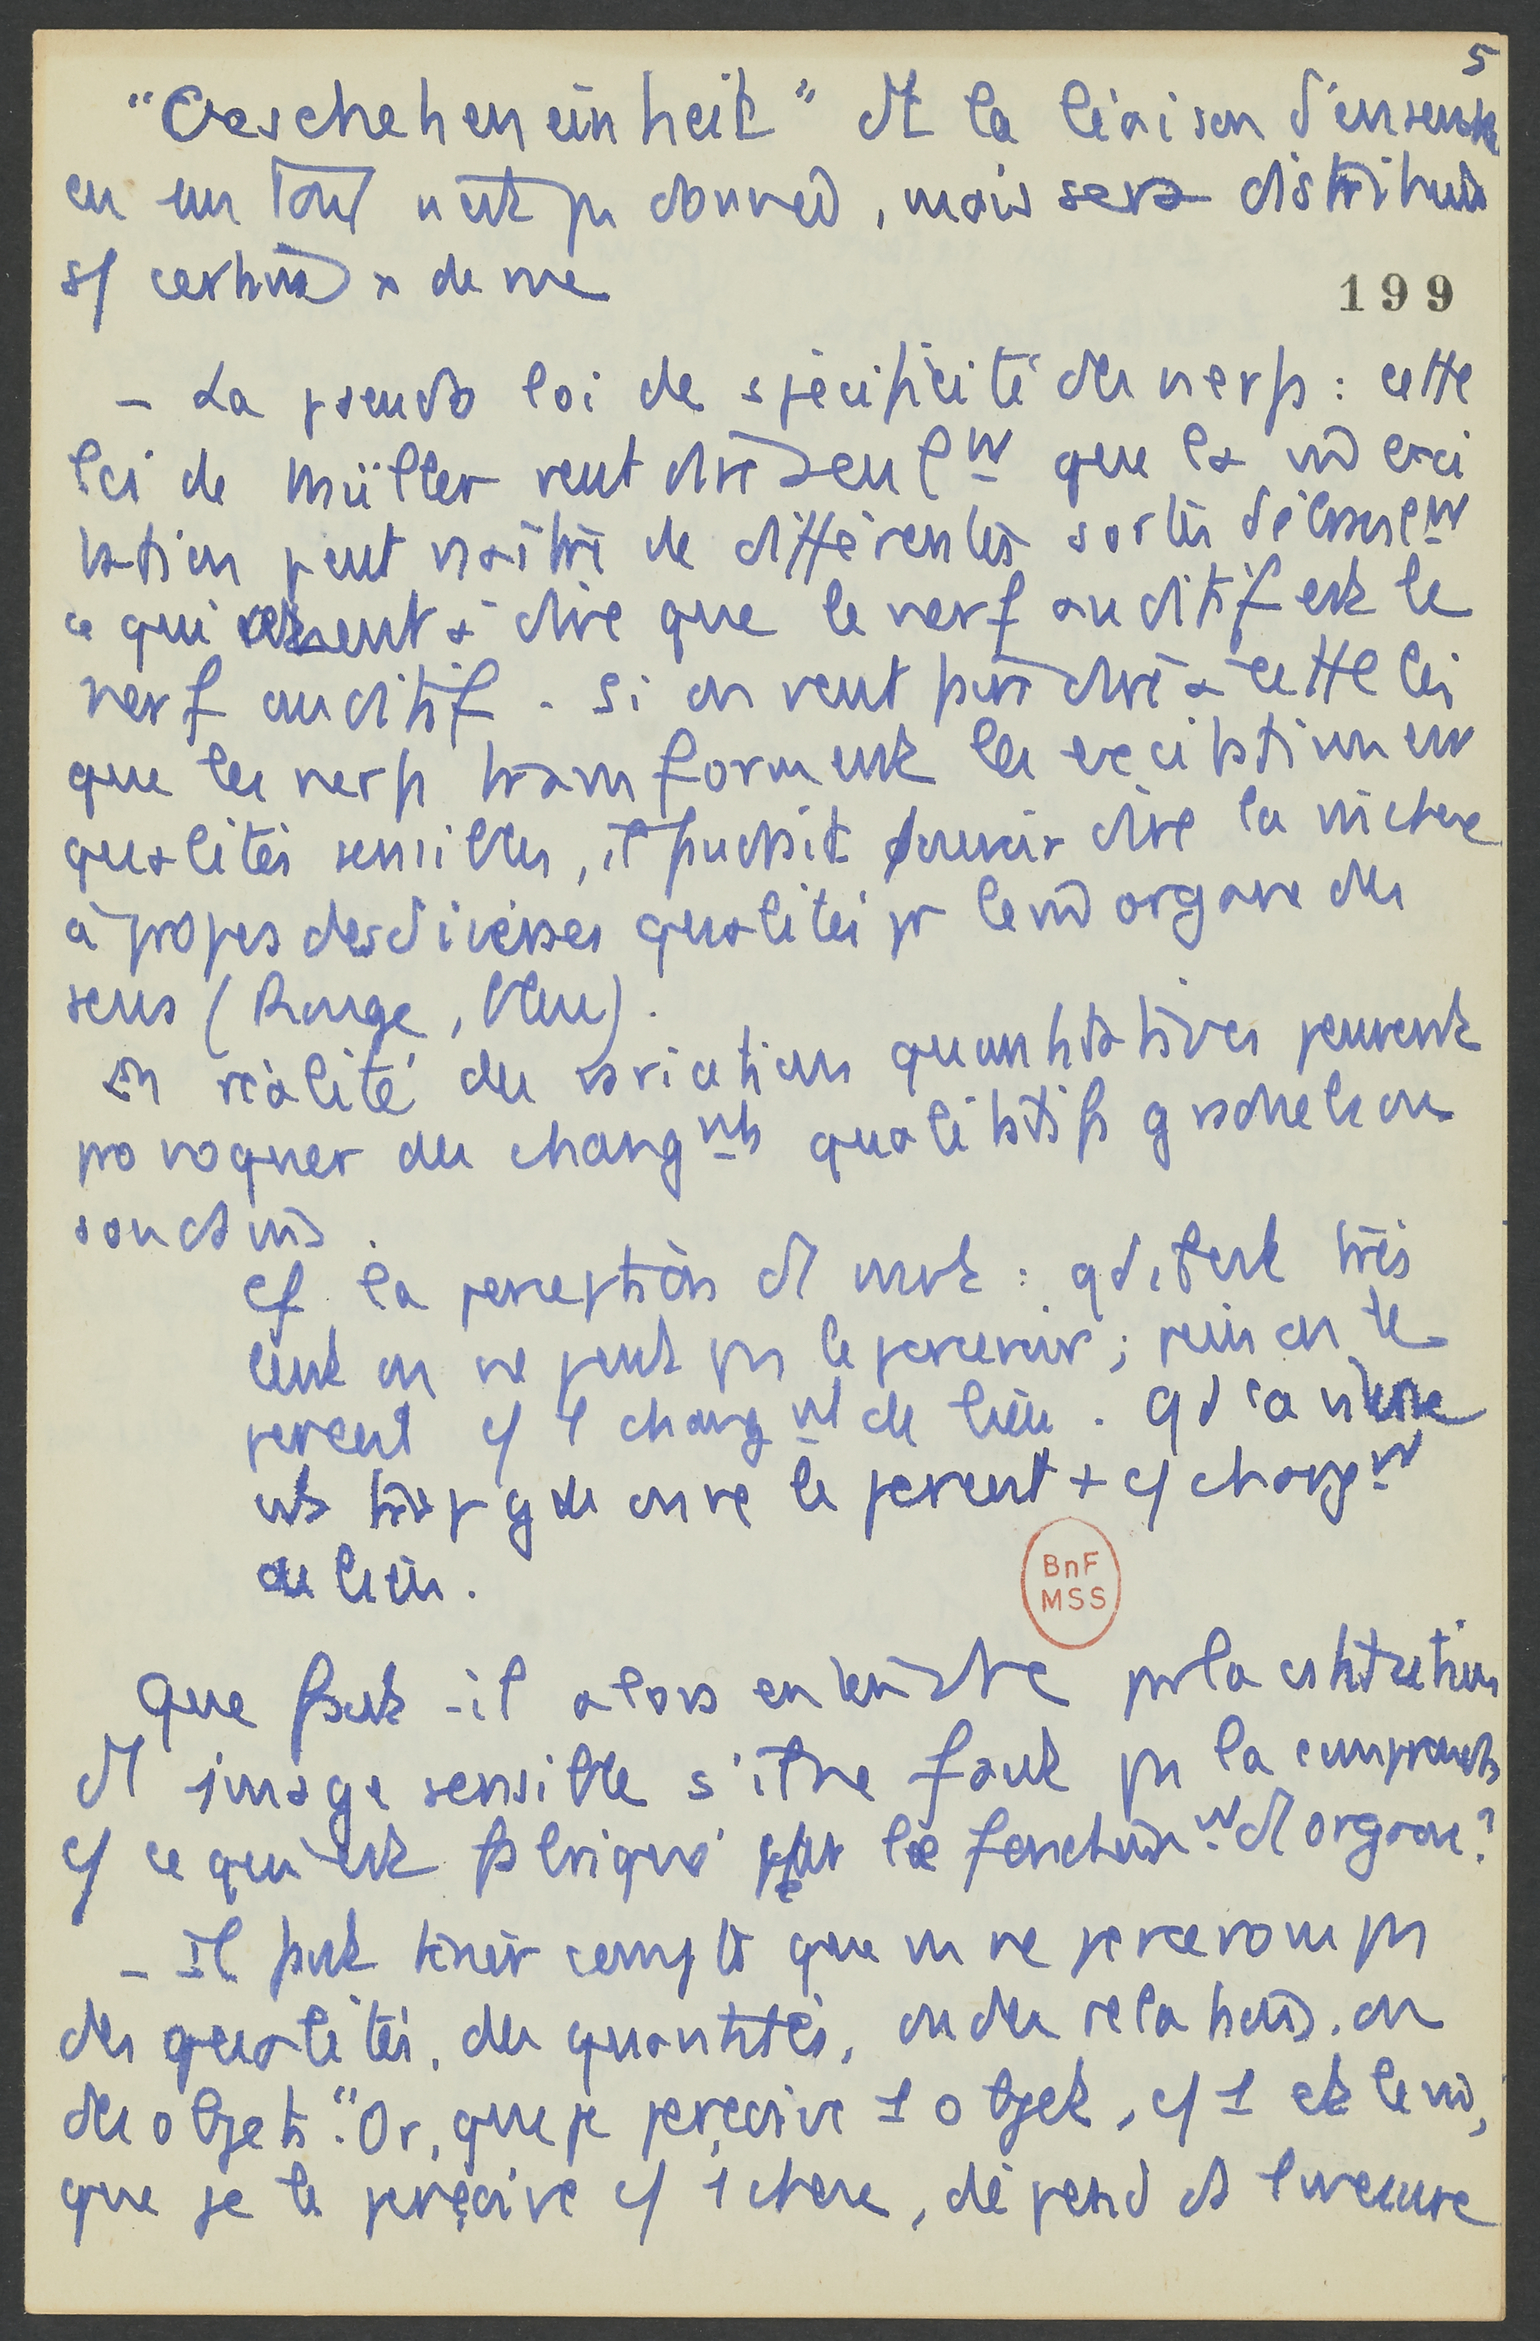 5
"Gescheheneinheit" dt la liaison d'ensemble
en un Tout n'est pas donnée, mais sera distribuée
s/ certains x de vue
199
- La pseudo loi de spécificité des nerfs : cette
loi de Müller veut dire seulmt que la m̂ exci
tation peut naître de différentes sortes
ce qui revient à dire que le nerf auditif est le
nerf auditif. Si on veut faire dire à cette loi
que les nerfs transforment les excitations en
qualités sensibles, il faudrait pouvoir dire la m̂ chose
à propos des diverses qualités pr le m̂ organe des
sens (Rouge, bleu).
En réalité des variations quantitatives peuvent
provoquer des changmts qualitatifs graduels ou
soudains.
cf. la perception d'1 mvt : qd il est très
lent on ne peut pas le percevoir ; puis on le
perçoit c/ 1 changmt de lieu. Qd la vitesse
est trop gde on ne le perçoit + c/ changmt
de lieu.
BnF
MSS
Que faut-il alors entendre par la constitution
d'1 image sensible s'il ne faut pas la comprendre
c/ ce qui est fabriqué par le fonctionmt d'1 organe ?
- Il faut tenir compte que ns ne percevons pas
des qualités, des quantités, ou des relations, ou
des objets. "Or, que je perçoive 1 objet, c/ 1 et le m̂,
que je le perçoive c/ 1 chose, dépend de